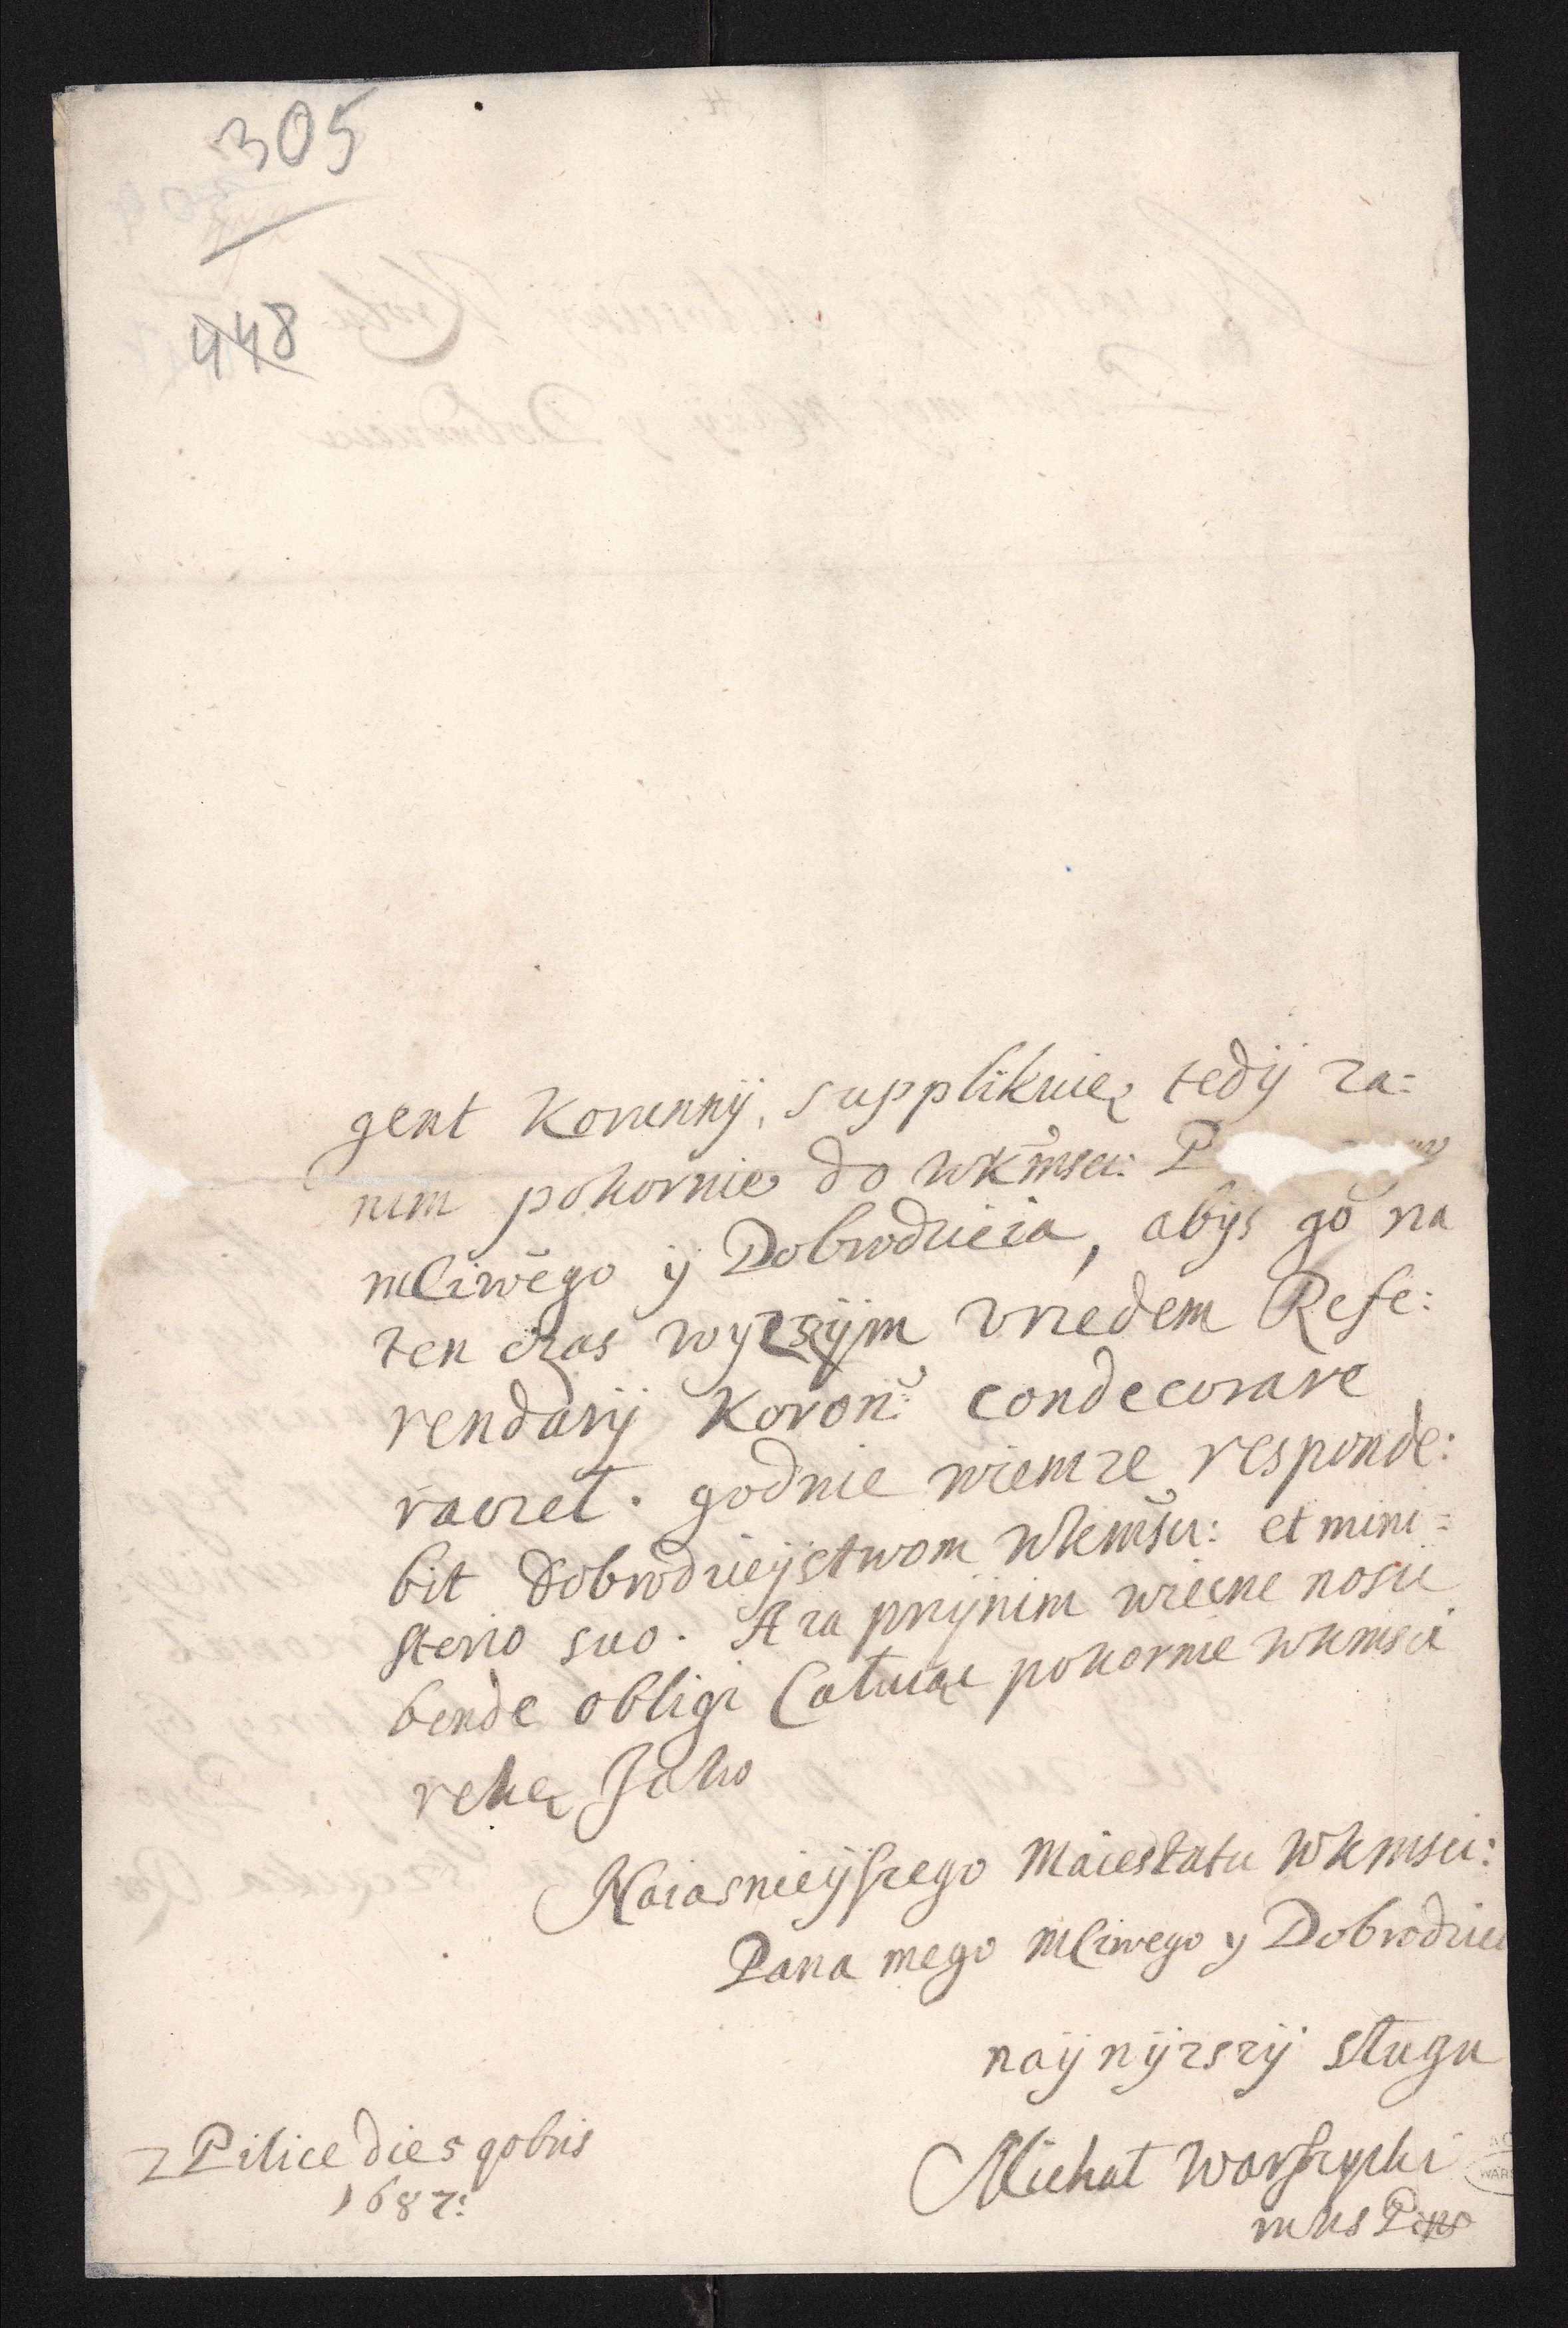 305
448
gent Korunnÿ, supplikuię tedÿ za:
nim pokornie do WKmsci: P
mCiwego ÿ Dobrodzieia, abÿs go na
ten czas wyzsÿm vrzedem Refe:
rendarÿ Koron: condecorare
raczeł. godnie wiem ze responde:
bit Dobrodzieÿstwom Wkmsci: et mini:
sterio suo. A za przÿnim wiecne nosic
bende obligi Całuiąc pokornie wkmsci
rękę Jako
Naiasnieÿszego Maiestatu Wkmsci:
Pana mego mCiwego y Dobrodziei
naÿnÿzszÿ sługa
Michał Warszycki
z Pilice die 5 9bris
1687: